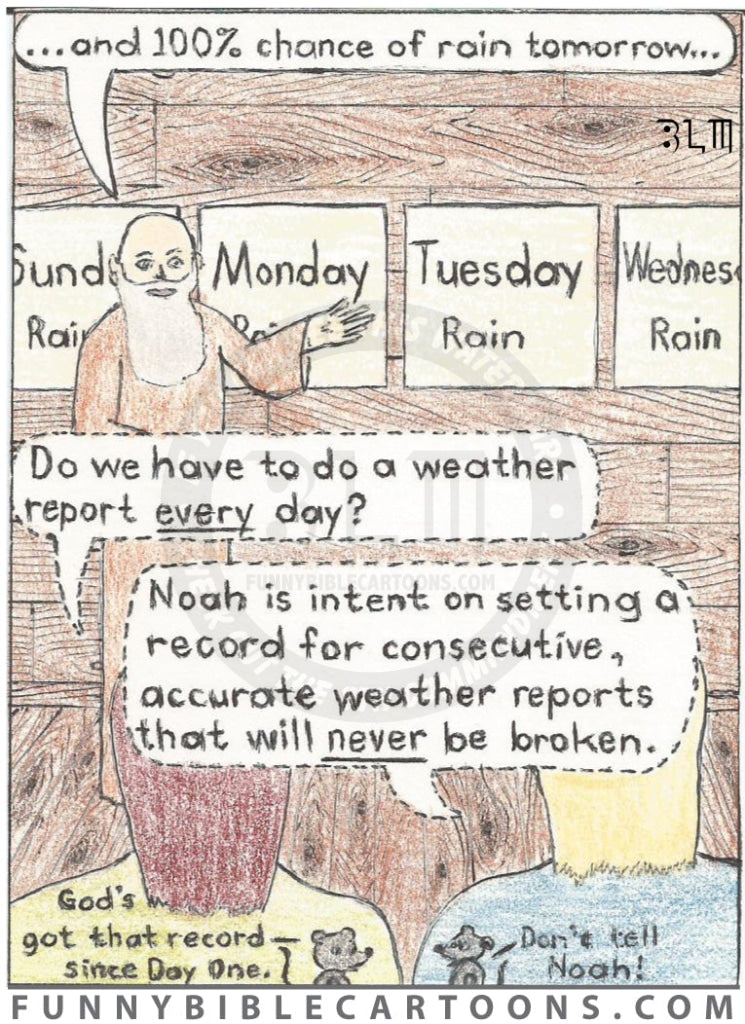 ...and 100% chance of rain tomorrow...
BLM
Sund
Rain
Monday
Tuesday
Rain
Wednes
Rain
Do we have to do a weather
report every day?
FUNNYBIBLECARTOONS.COM
Noah is intent on setting a
record for consecutive,
accurate weather reports
that will never be broken.
God's
got that record
since Day One.
Don't tell
Noah!
FUNNYBIBLECARTOONS.COM